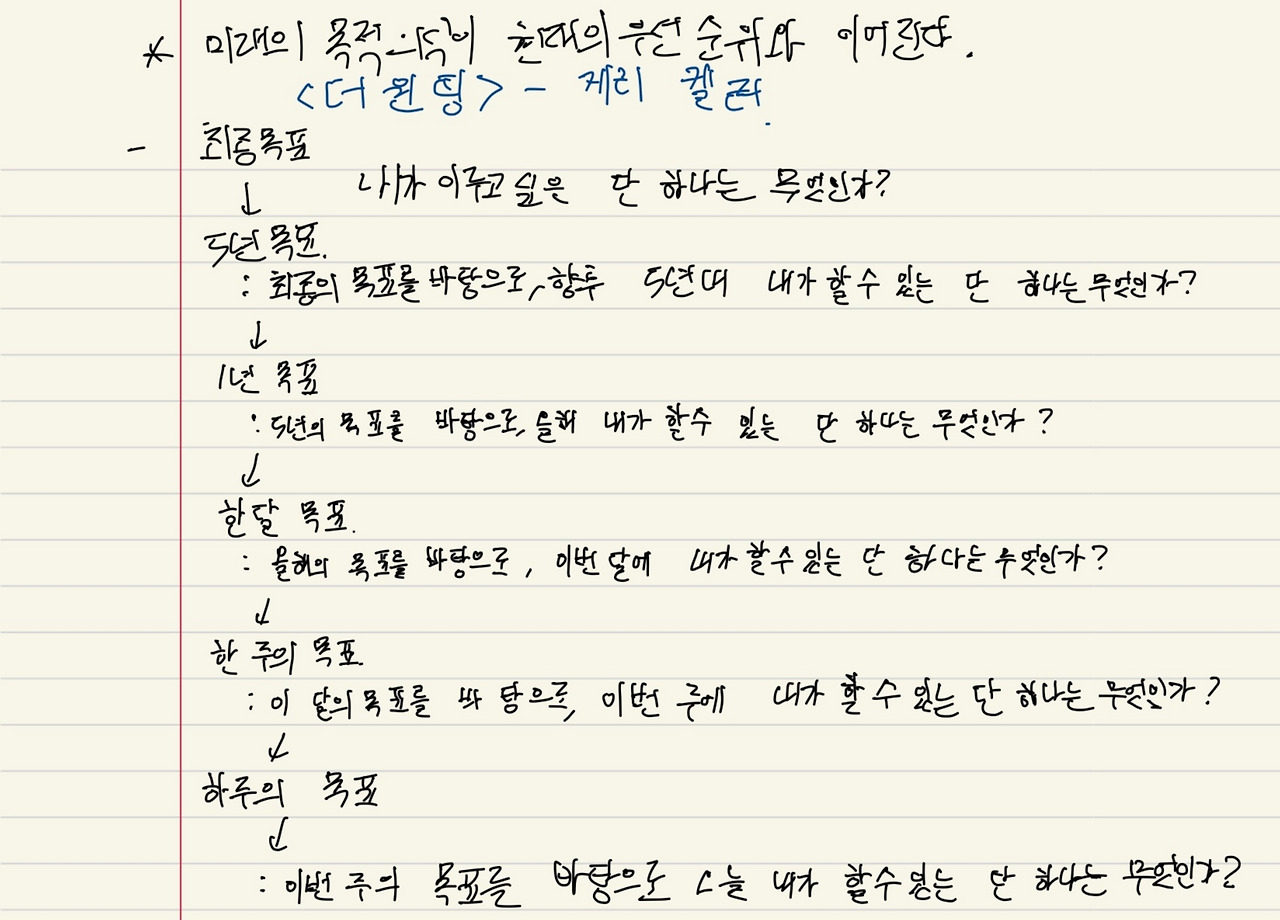 * 미래의 목적의식이 현재의 우선 순위와 이어진다.
<더 원띵> - 게리 켈러.
- 최종목표
↓ 내가 이루고 싶은 단 하나는 무엇인가?
5년 목표.
: 최종의 목표를 바탕으로, 향후 5년뒤 내가 할 수 있는 단 하나는 무엇인가?
↓
1년 목표
: 5년의 목표를 바탕으로, 올해 내가 할 수 있는 단 하나는 무엇인가?
↓
한달 목표.
: 올해의 목표를 바탕으로, 이번 달에 내가 할 수 있는 단 하나는 무엇인가?
↓
한 주의 목표
: 이 달의 목표를 바탕으로, 이번 주에 내가 할 수 있는 단 하나는 무엇인가?
↓
하루의 목표
↓
: 이번 주의 목표를 바탕으로 오늘 내가 할 수 있는 단 하나는 무엇인가?